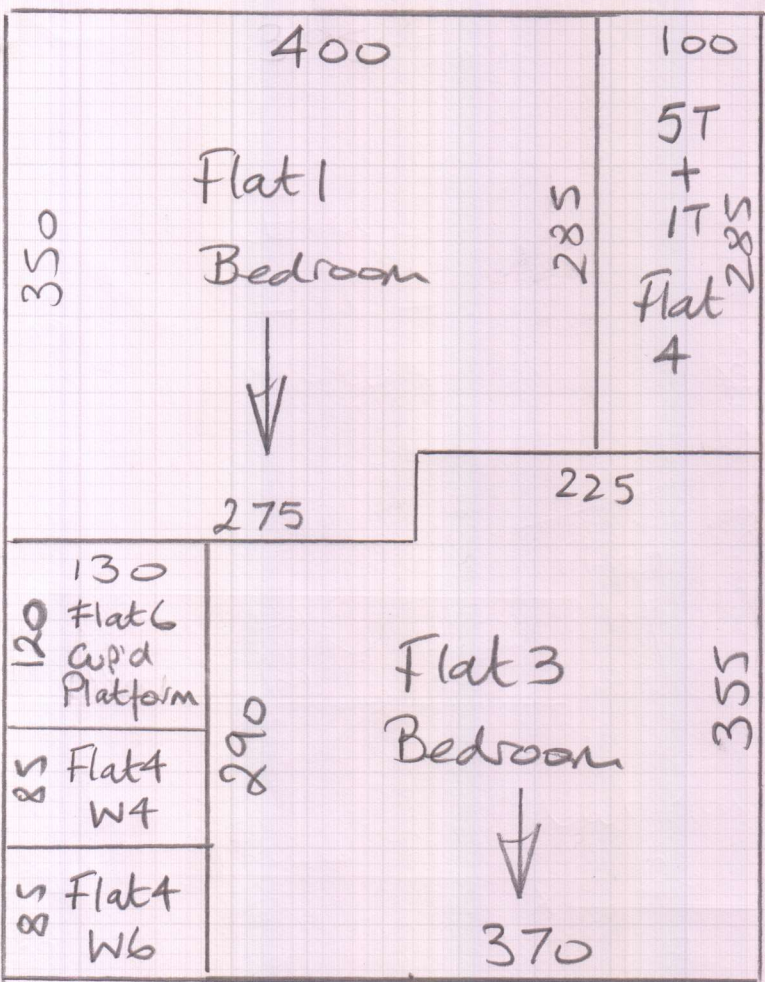 400
Flat 1
Bedroom
350
285
275
100
5T
+
1T
Flat
4
285
225
130
120
Flat 6
Cup'd
Platform
85
Flat 4
W4
85
Flat 4
W6
290
Flat 3
Bedroom
355
370